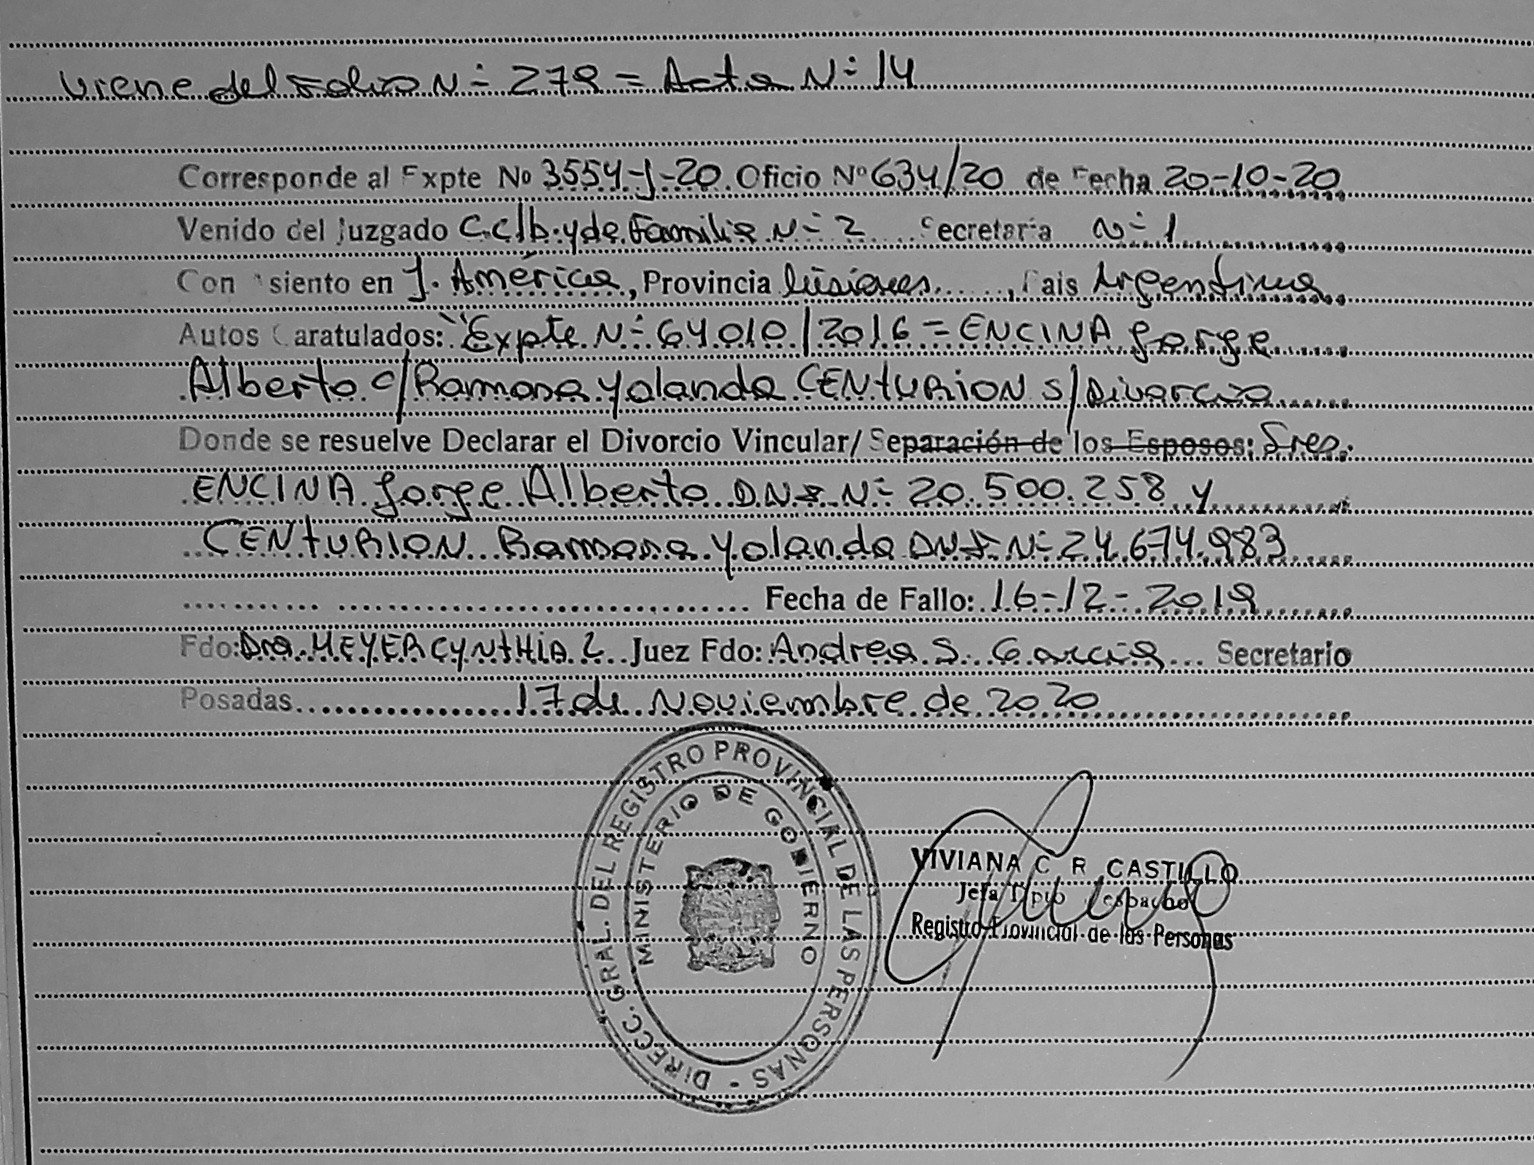 viene del Folio N° 279 = Acta N° 14
Corresponde al Expte No 3554-J-20 Oficio N° 634/20 de Fecha 20-10-20
Venido del Juzgado C.C.lb. y de Familia N° 2 Secretaria N° 1
Con asiento en J. América, Provincia Misiones, Pais Argentina
Autos Caratulados: "Expte N° 64010/2016 = ENCINA Jorge
Alberto c/ Ramona Yolanda CENTURION S/Divorcio
Donde se resuelve Declarar el Divorcio Vincular/ Separación de los Esposos: Sres.
ENCINA Jorge Alberto D.N.I. N° 20.500.258 y
CENTURION Ramona Yolanda DNI N° 24.674.983
Fecha de Fallo: 16-12-2019
Fdo: Dra. MEYER CYNTHIA Juez Fdo: Andrea S. Garcia Secretario
Posadas 17 de Noviembre de 2020
DIRECC. GRAL. DEL REGISTRO PROVINCIAL DE LAS PERSONAS -
MINISTERIO DE GOBIERNO
VIVIANA C. R. CASTILLO
Jefa Dpto Despacho
Registro Provincial de las Personas